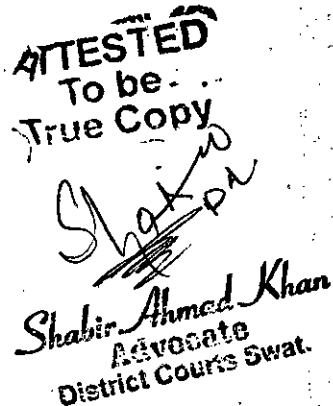 ATTESTED
To be
True Copy
Shabir Ahmad Khan
Advocate
District Courts Swat.